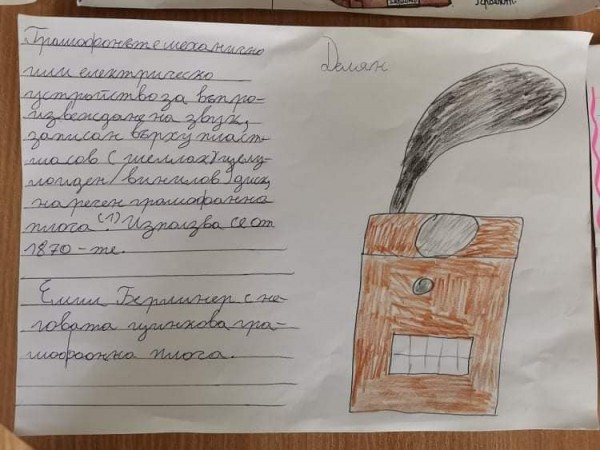 Грамофонът е механично
или електрическо
устройство за възпро-
извеждане на звук,
записан върху пласт-
масов (шеллак) целу-
лоиден/винилов) диск,
наречен грамофонна
плоча.(1) Използва се от
1870-те.
Емил Берлинер с не-
говата цинкова гра-
мофонна плоча.
Делян